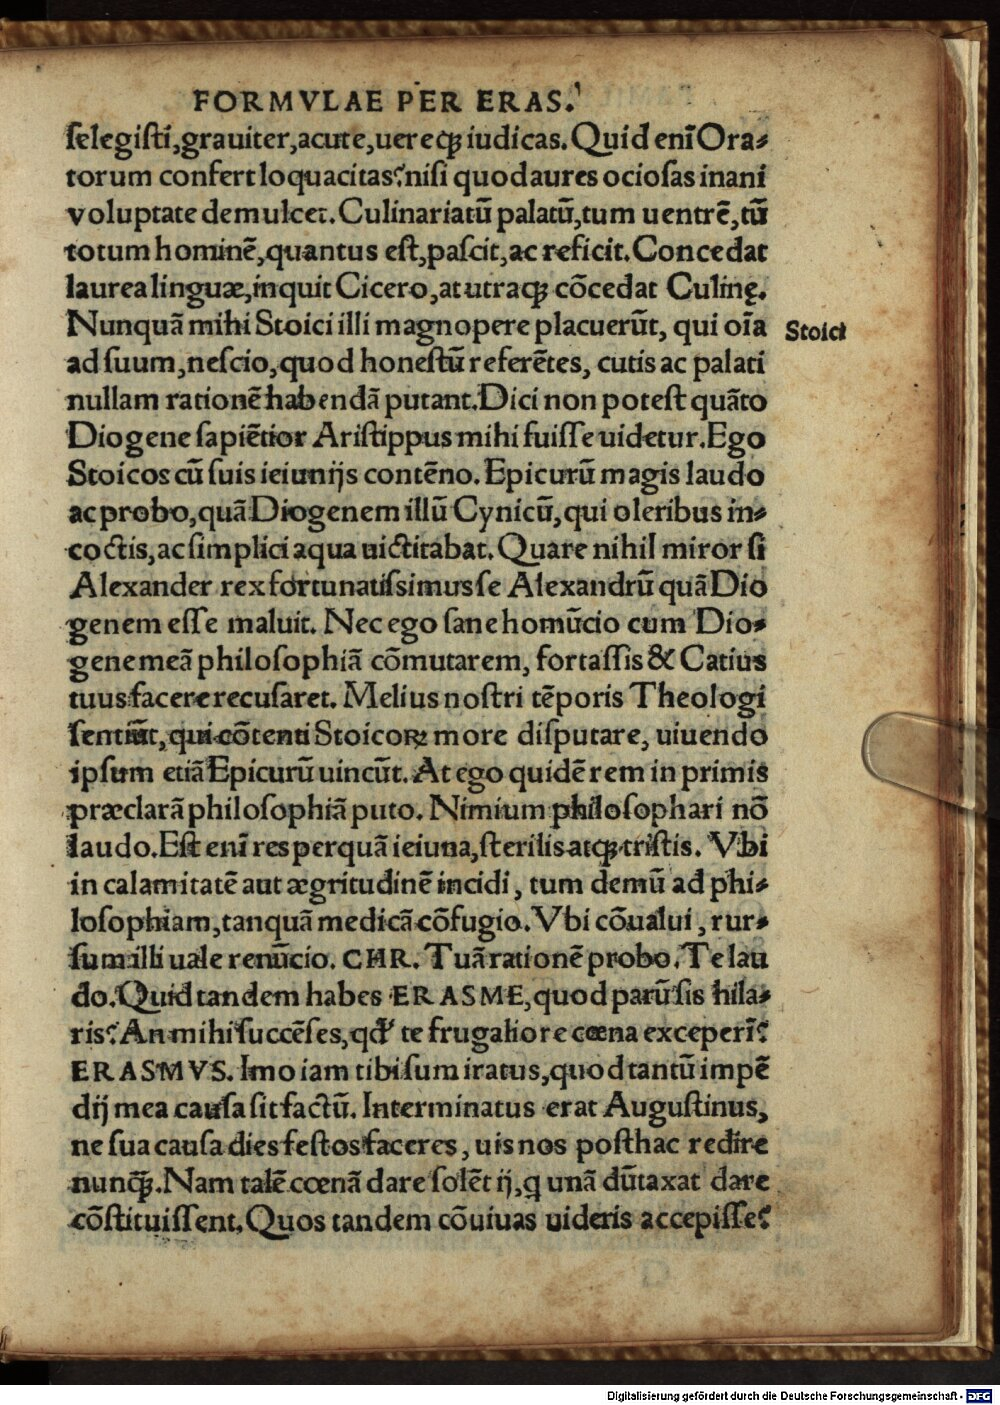 FORMVLAE PER ERAS.
ſelegiſti, grauiter, acute, uereq́ꝫ iudicas. Quid enī Ora⸗
torum confert loquacitas? niſi quod aures ocioſas inani
voluptate demulcet. Culinaria tū palatū, tum uentrē, tū
totum hominē, quantus eſt, paſcit, ac reficit. Concedat
laurea linguæ, inquit Cicero, at utraqꝫ cōcedat Culinę.
Nunquā mihi Stoici illi magnopere placuerūt, qui oīa
Stoici
ad ſuum, neſcio, quod honeſtū referētes, cutis ac palati
nullam rationē habendā putant. Dici non poteſt quāto
Diogene ſapiētior Ariſtippus mihi fuiſſe uidetur. Ego
Stoicos cū ſuis ieiunijs contēno. Epicurū magis laudo
ac probo, quā Diogenem illū Cynicū, qui oleribus in⸗
coctis, ac ſimplici aqua uictitabat. Quare nihil miror ſi
Alexander rex fortunatiſsimus ſe Alexandrū quā Dio
genem eſſe maluit. Nec ego ſane homūcio cum Dio⸗
gene meā philoſophiā cōmutarem, fortaſſis & Catius
tuus facere recuſaret. Melius noſtri tēporis Theologi
ſentiūt, qui cōtenti Stoicoꝝ more diſputare, uiuendo
ipſum etiā Epicurū uincūt. At ego quidē rem in primis
præclarā philoſophiā puto. Nimium philoſophari nō
laudo. Eſt enī res perquā ieiuna, ſterilis atqꝫ triſtis. Vbi
in calamitatē aut ægritudinē incidi, tum demū ad phi⸗
loſophiam, tanquā medicā cōfugio. Vbi cōualui, rur⸗
ſum illi uale renūcio. CHR. Tuā rationē probo. Te lau
do. Quid tandem habes ERASME, quod parū ſis hila⸗
ris? An mihi ſuccēſes, qd̕ te frugaliore cœna exceperī?
ERASMVS. Imo iam tibi ſum iratus, quod tantū impē
dij mea cauſa ſit factū. Interminatus erat Auguſtinus,
ne ſua cauſa dies feſtos faceres, uis nos poſthac redire
nunqꝫ. Nam talē cœnā dare ſolēt ij, q unā dūtaxat dare
cōſtituiſſent. Quos tandem cōuiuas uideris accepiſſe?
Digitalisierung gefördert durch die Deutsche Forschungsgemeinschaft - DFG